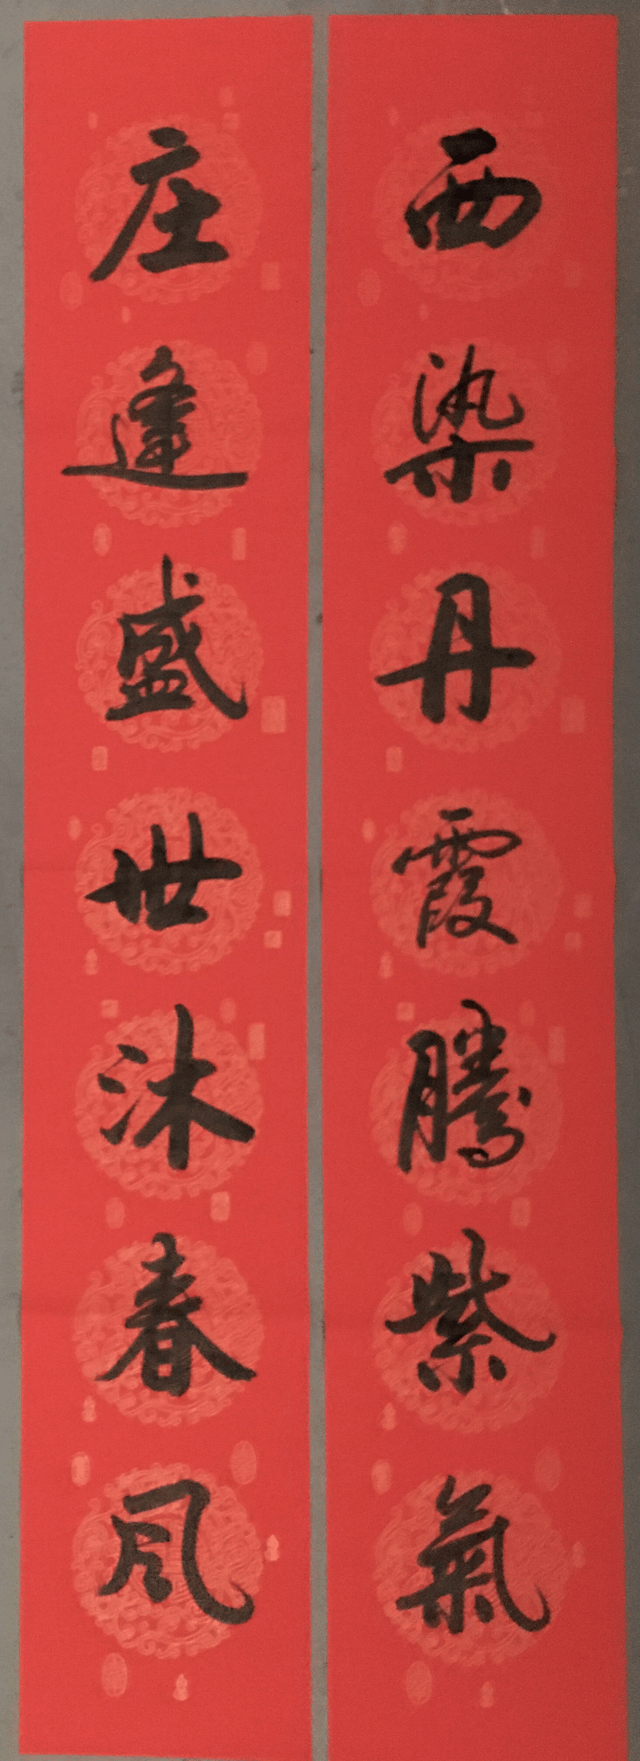 西染丹霞騰紫氣
庄逢盛世沐春风